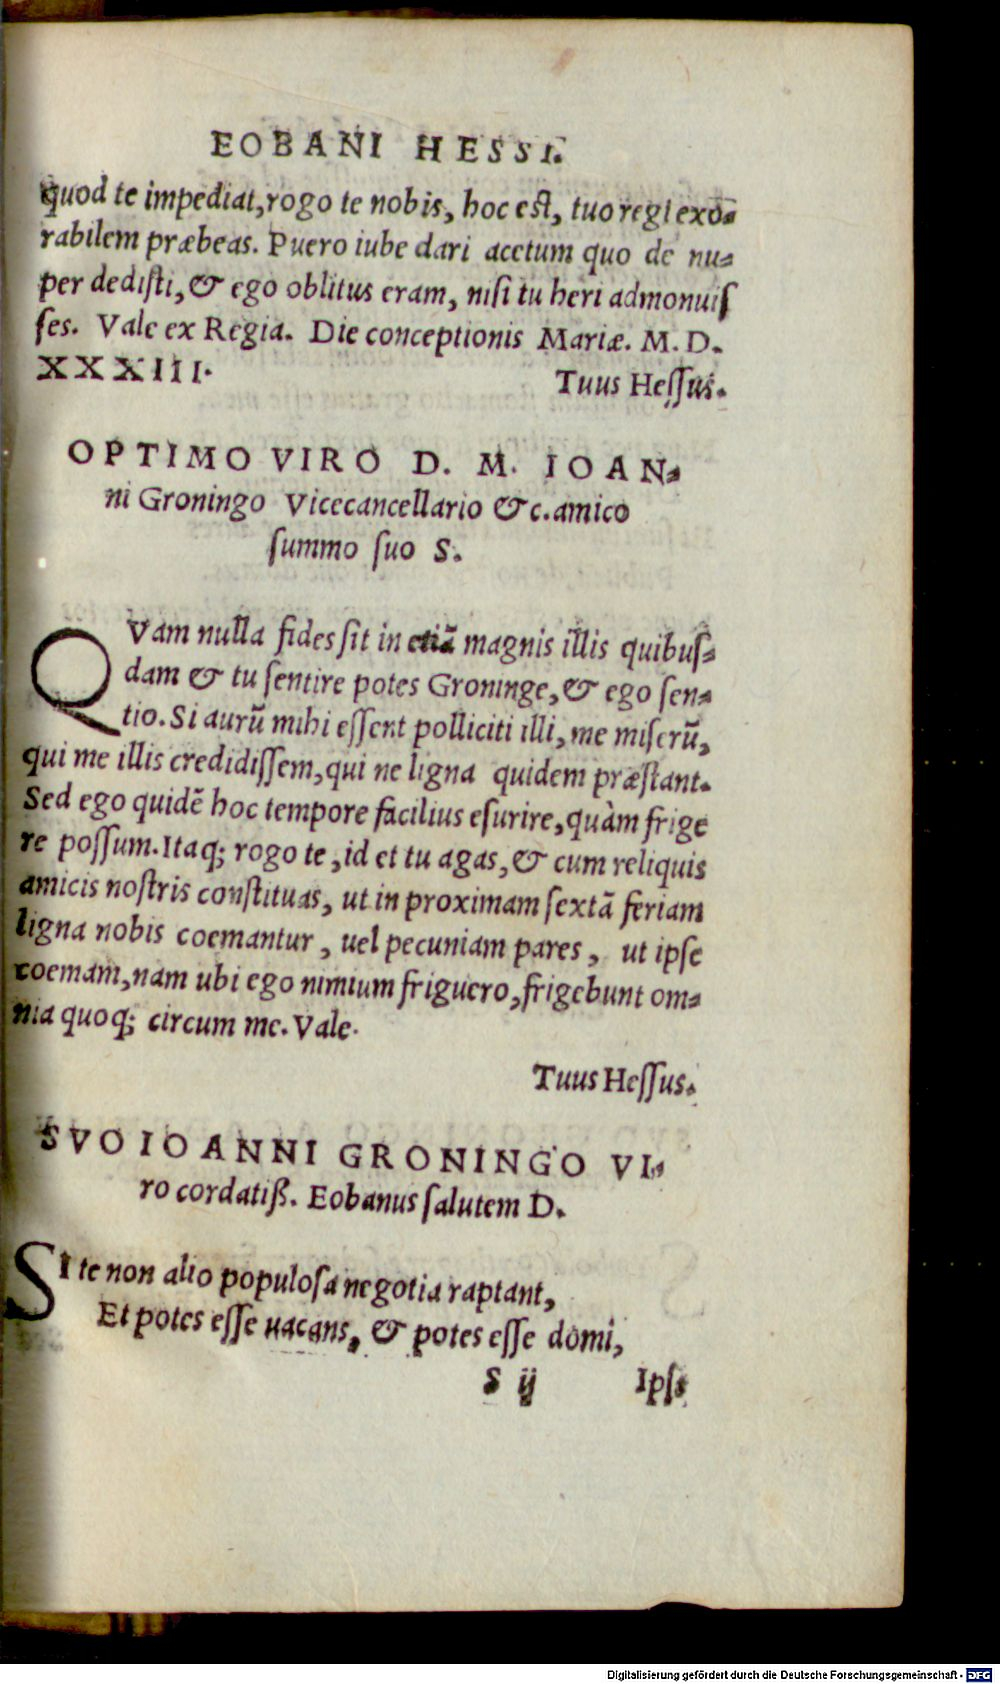 EOBANI HESSI.
quod te impediat, rogo te nobis, hoc est, tuo regi exo-
rabilem præbeas. Puero iube dari acetum quo de nu-
per dedisti, & ego oblitus eram, nisi tu heri admonuis
ses. Vale ex Regia. Die conceptionis Mariæ. M. D.
XXXIII.
Tuus Hessus.
OPTIMO VIRO D. M. IOAN-
ni Groningo Vicecancellario &c. amico
summo suo S.
QVam nulla fides sit in etiã magnis illis quibus-
dam & tu sentire potes Groninge, & ego sen-
tio. Si aurũ mihi essent polliciti illi, me miserũ,
qui me illis credidissem, qui ne ligna quidem præstant.
Sed ego quidẽ hoc tempore facilius esurire, quàm frige
re possum. Itaq; rogo te, id et tu agas, & cum reliquis
amicis nostris constituas, ut in proximam sextã feriam
ligna nobis coemantur, uel pecuniam pares, ut ipse
coemam, nam ubi ego nimium friguero, frigebunt om-
nia quoq; circum me. Vale.
Tuus Hessus.
SVO IOANNI GRONINGO VI-
ro cordatiß. Eobanus salutem D.
SI te non alio populosa negotia raptant,
Et potes esse uacans, & potes esse domi,
S ij Ipse
Digitalisierung gefördert durch die Deutsche Forschungsgemeinschaft - DFG